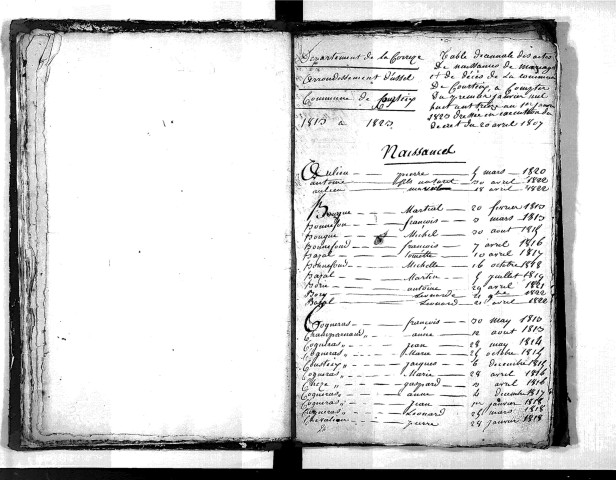 Département de la Corrèze
Arrondissement d'ussel
Commune de Courteix
1813 à 1823
Table décennale des actes
de naissances de mariages
et de décès de la commune
de Courteix, à compter
du premier janvier mil
huit cent treize au 1er janvier
1823 dressée en exécution du
décret du 20 avril 1807
Naissances
Aulieu pierre 5 mars 1820
antoine fils naturel 30 avril 1822
aulieu 18 avril 1822
Bouque Martial 20 fevrier 1813
Bonnefon françois 3 mars 1813
Bouque Michel 30 aout 1815
Bonnefond françois 7 avril 1816
Bazal 10 avril 1817
Bonnefond Michelle 16 octobre 1818
Bazal Martin 5 juillet 1819
Borie antoine 29 avril 1821
Bory Leonarde 21 9bre 1822
Bazal Leonard 21 avril 1822
Cogneras françois 30 may 1813
Champarnaud anne 12 aout 1813
Cogneras jean 28 may 1814
Cogneras Marie 25 octobre 1815
Courteix jacques 6 decembre 1815
Cogneras Marie 28 avril 1816
Cheze gaspard 2 avril 1816
Cogneras anne 4 decembre 1817
Cogneras jean janvier 1818
Cogneras Leonard 25 mars 1818
Chevalier pierre 28 janvier 1818